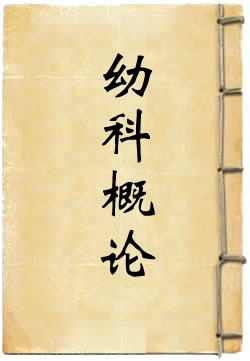 幼科概论